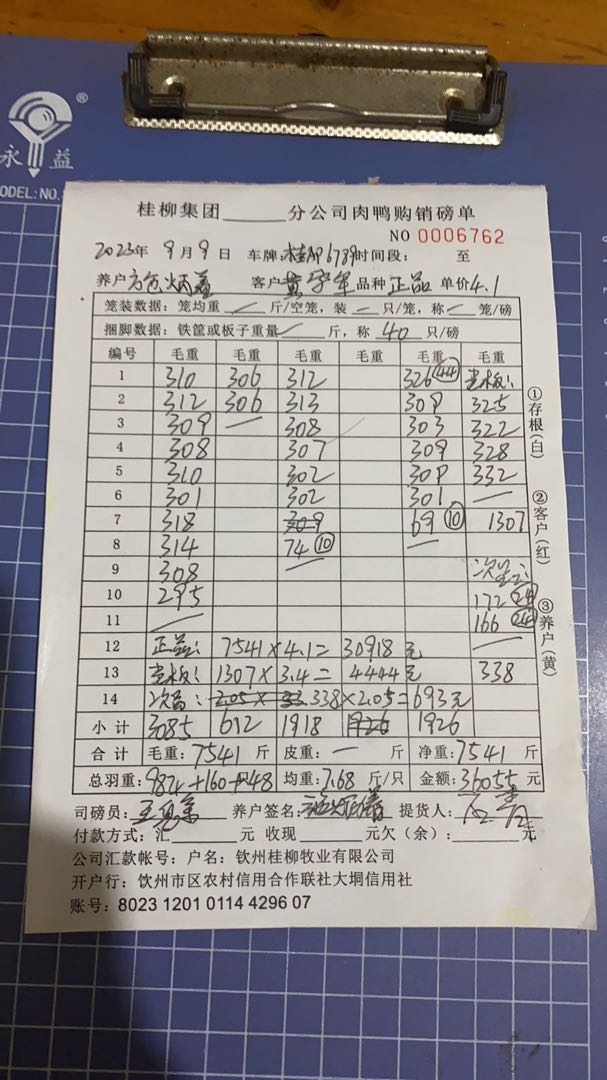 永益®
MODEL:NO.
桂柳集团______分公司肉鸭购销磅单
NO 0006762
2023年 9月9日 车牌: 桂AP6789 时间段: 至
养户 客户 黄学军 品种 正品 单价 4.1
笼装数据: 笼均重 — 斤/空笼, 装 — 只/笼, 称 — 笼/磅
捆脚数据: 铁筐或板子重量 — 斤, 称 40 只/磅
编号 毛重 毛重 毛重 毛重 毛重 毛重
1 310 306 312 326 (44)
2 312 306 313 308 325
3 309 — 308 303 322
4 308 307 309 328
5 310 302 308 332
6 301 302 301 —
7 318 309 69 (10) 1307
8 314 74 (10) —
9 308 —
10 295 172 (24)
11 — 166 (24)
12 正品: 7541×4.1= 30918元 —
13 1307×3.4= 4444元 338
14 338×2.05=693元
小计 3085 612 1918 1926 1926
合计 毛重: 7541 斤 皮重: — 斤 净重: 7541 斤
总羽重: 982+160+48 均重: 7.68 斤/只 金额: 36055 元
司磅员: 养户签名: 提货人:
付款方式: 汇______元 收现______元欠(余):______元
公司汇款帐号: 户名: 钦州桂柳牧业有限公司
开户行: 钦州市区农村信用合作联社大垌信用社
账号: 8023 1201 0114 4296 07
①存根(白)
②客户(红)
③养户(黄)